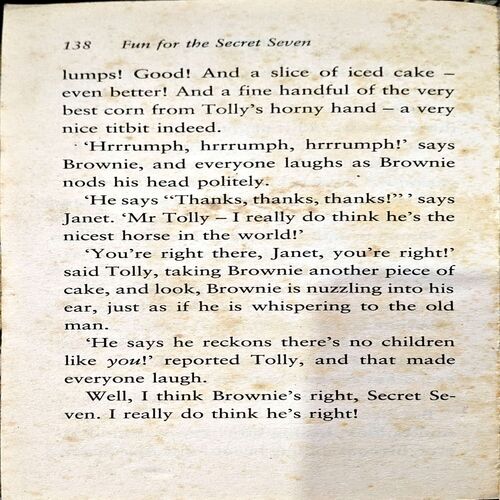 138 Fun for the Secret Seven
lumps! Good! And a slice of iced cake –
even better! And a fine handful of the very
best corn from Tolly's horny hand – a very
nice titbit indeed.
'Hrrrumph, hrrrumph, hrrrumph!' says
Brownie, and everyone laughs as Brownie
nods his head politely.
'He says "Thanks, thanks, thanks!" ' says
Janet. 'Mr Tolly – I really do think he's the
nicest horse in the world!'
'You're right there, Janet, you're right!'
said Tolly, taking Brownie another piece of
cake, and look, Brownie is nuzzling into his
ear, just as if he is whispering to the old
man.
'He says he reckons there's no children
like you!' reported Tolly, and that made
everyone laugh.
Well, I think Brownie's right, Secret Se-
ven. I really do think he's right!